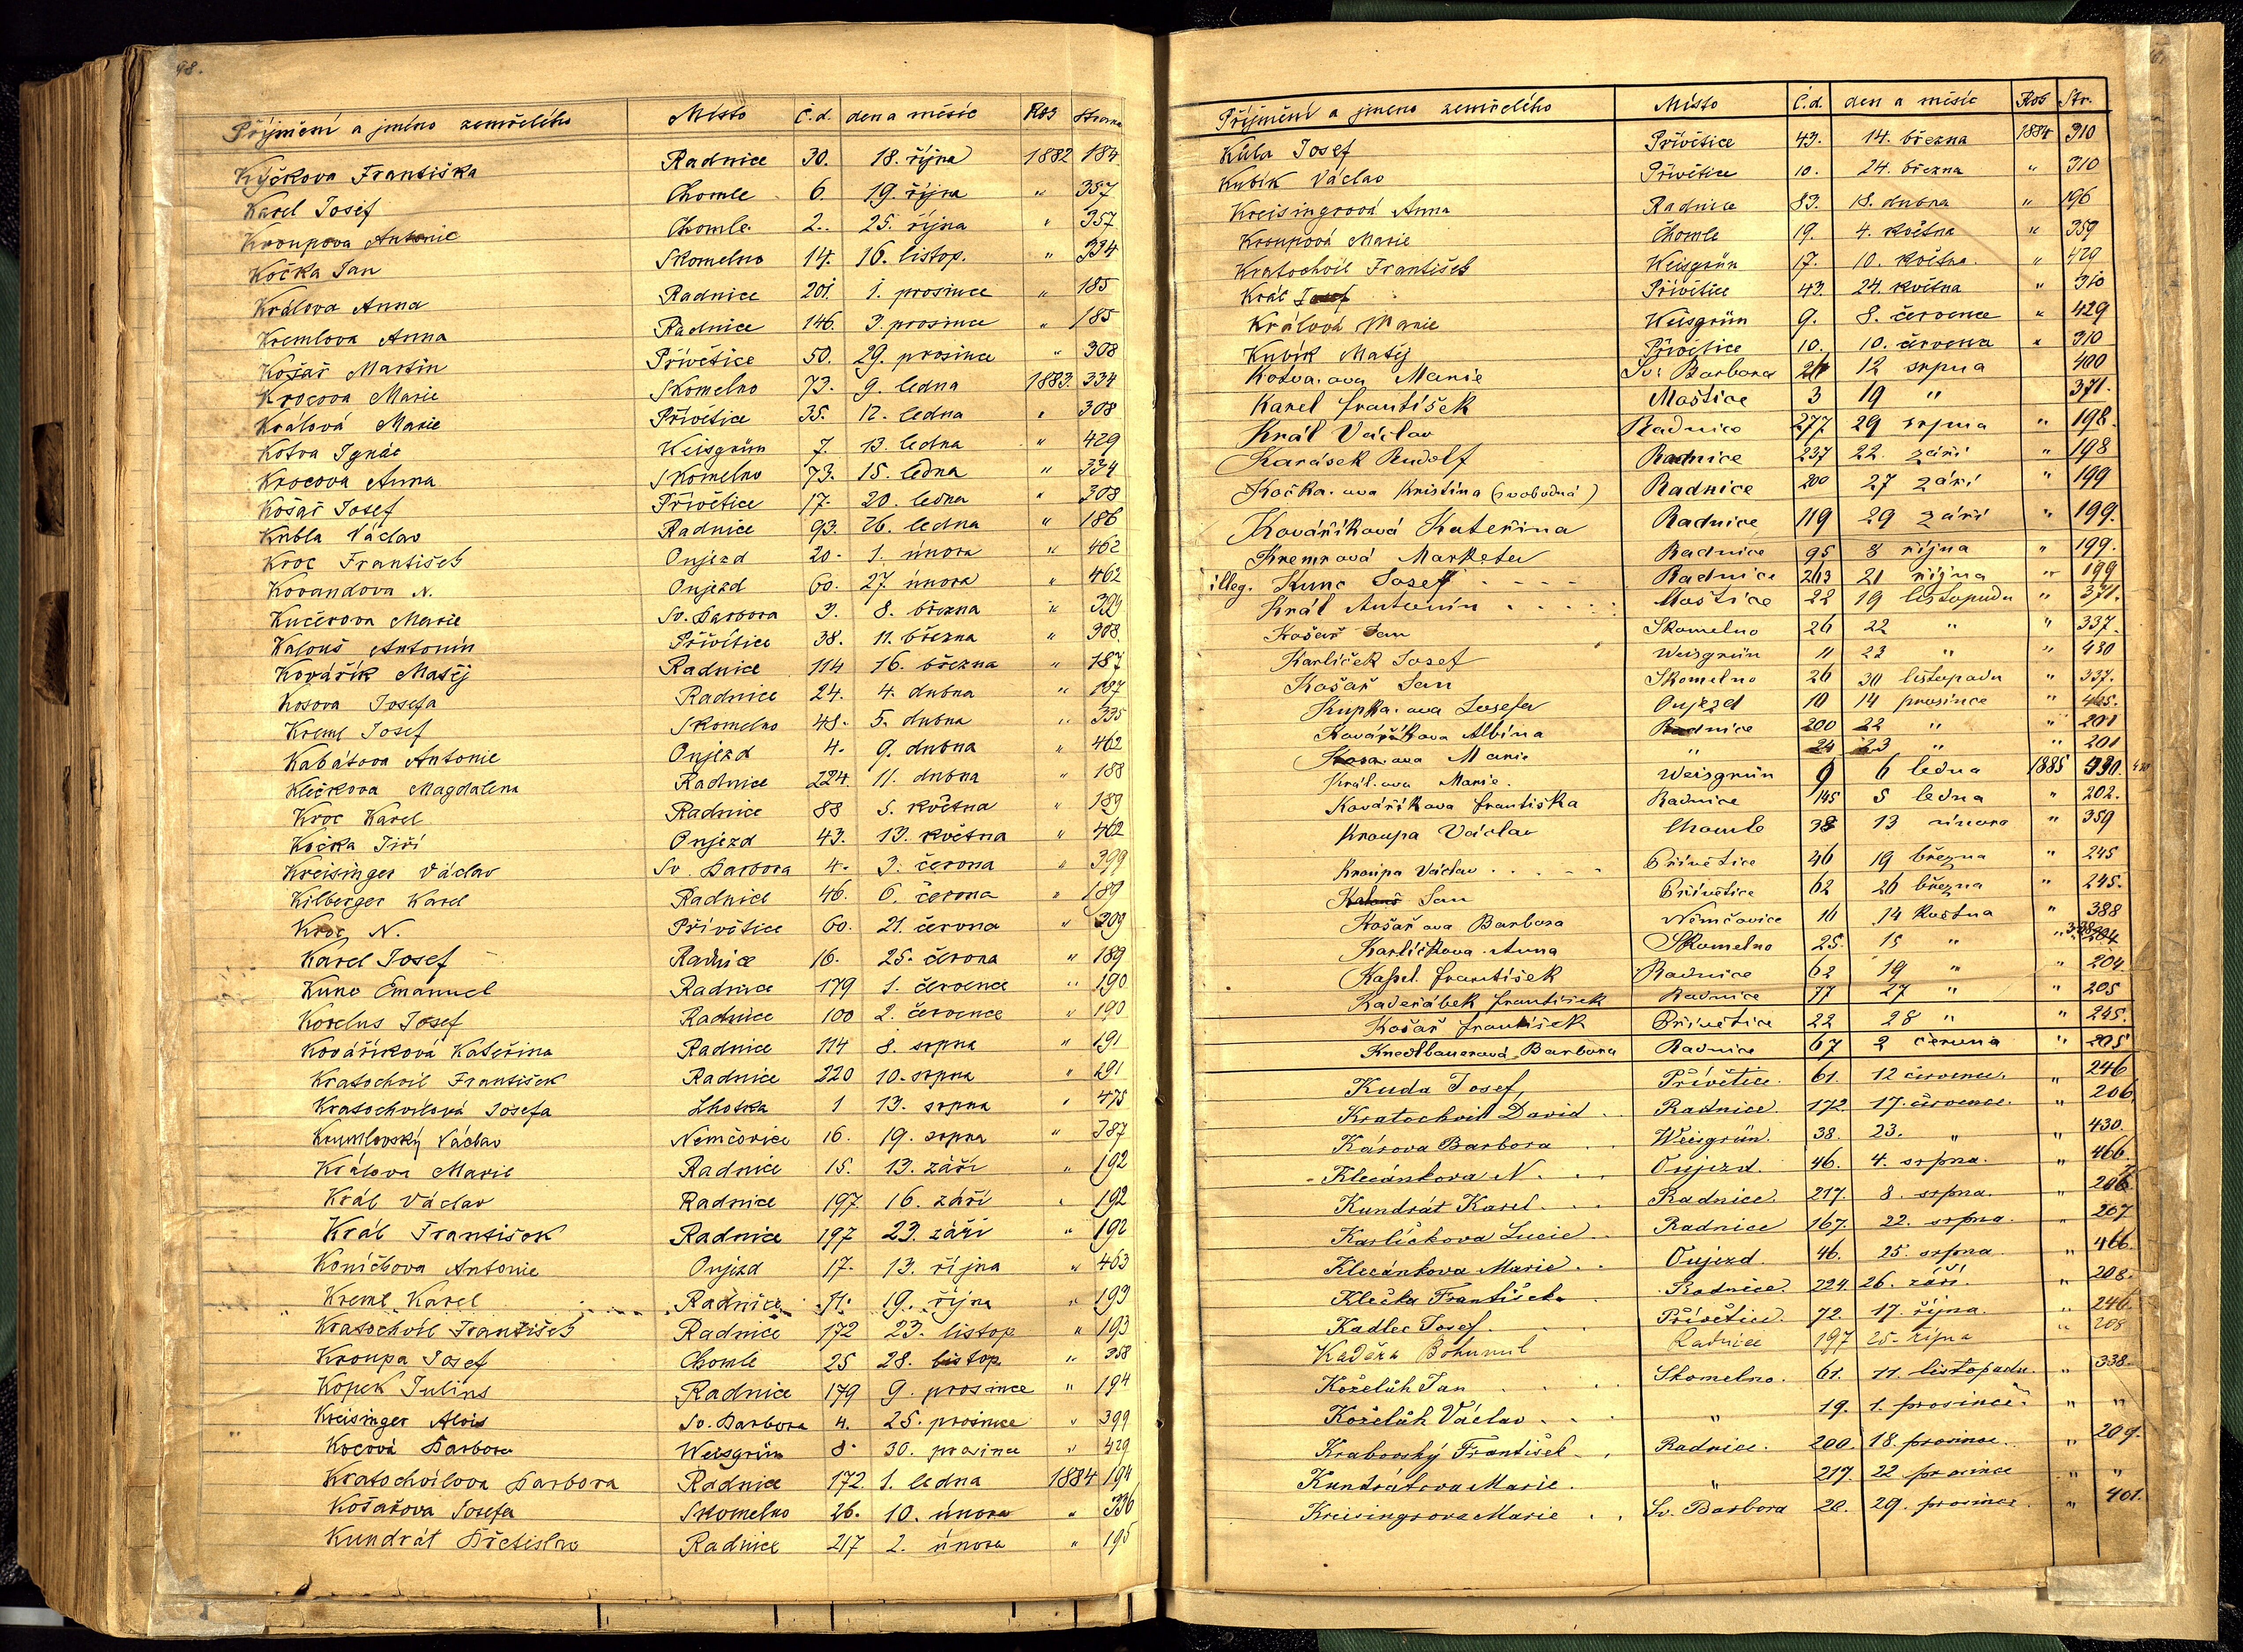 98.
Příjmění a jméno zemřelého Místo Č.d. den a měsíc Rok Strana
Kyčkova Františka Radnice 30. 18. října 1882 184
Karel Josef Chomle 6. 19. října " 357
Kroupova Antonie Chomle 2. 25. října " 357
Kočka Jan Skomelno 14. 16. listop. " 334
Králova Anna Radnice 201. 1. prosince " 185
Kremlova Anna Radnice 146. 3. prosince " 185
Košař Martin Přívětice 50. 29. prosince " 308
Krocova Marie Skomelno 73. 9. ledna 1883. 334
Králová Marie Přívětice 35. 12. ledna " 308
Kotva Ignác Weisgrün 7. 13. ledna " 429
Krocova Anna Skomelno 73. 15. ledna " 334
Košař Josef Přívětice 17. 20. ledna " 308
Kubla Václav Radnice 93. 26. ledna " 186
Kroc František Oujezd 20. 1. února " 462
Kovandova N. Oujezd 60. 27. února " 462
Kučerova Marie Sv. Barbora 3. 8. března " 399
Kalouš Antonín Přívětice 38. 11. března " 308.
Kovářík Matěj Radnice 114 16. března " 187
Kosova Josefa Radnice 24. 4. dubna " 187
Kreml Josef Skomelno 48. 5. dubna " 335
Kabátova Antonie Oujezd 4. 9. dubna " 462
Klečkova Magdalena Radnice 224. 11. dubna " 188
Kroc Karel Radnice 88 5. května " 189
Kočka Jiří Oujezd 43. 13. května " 462
Kreisinger Václav Sv. Barbora 4. 3. června " 399
Kilberger Karel Radnice 46. 6. června " 189
Kroc N. Přívětice 60. 21. června " 309
Karel Josef Radnice 16. 25. června " 189
Kuno Emanuel Radnice 179 1. července " 190
Korelus Josef Radnice 100 2. července " 190
Kovaříková Kateřina Radnice 114 8. srpna " 191
Kratochvíl František Radnice 220 10. srpna " 191
Kratochvílová Josefa Lhotka 1 13. srpna " 475
Krumlovský Václav Němčovice 16. 19. srpna " 387
Králova Marie Radnice 15. 13. září " 192
Král Václav Radnice 197 16. září " 192
Král František Radnice 197 23. září " 192
Koníčkova Antonie Oujezd 17. 13. října " 463
Kreml Karel Radnice 71. 19. října " 193
Kratochvíl František Radnice 172 23. listop. " 193
Kroupa Josef Chomle 25 28. listop. " 358
Kopek Julius Radnice 179 9. prosince " 194
Kreisinger Alois Sv. Barbora 4. 25. prosince " 399
Kocová Barbora Weisgrün 8. 30. prosince " 429
Kratochvílova Barbora Radnice 172. 1. ledna 1884 194
Košařova Josefa Skomelno 26. 10. února " 336
Kundrát Břetislav Radnice 217 2. února " 195
Příjmění a jméno zemřelého Místo Č.d. den a měsíc Rok Str.
Kůla Josef Přívětice 43. 14. března 1884 310
Kubík Václav Přívětice 10. 24. března " 310
Kreisingrová Anna Radnice 83. 18. dubna " 196
Kroupová Marie Chomle 19. 4. května " 359
Kratochvíl František Weisgrün 17. 10. května. " 429
Král Josef Přívětice 43. 24. května " 310
Králová Marie Weisgrün 9. 8. července " 429
Kubík Matěj Přívětice 10. 10. července " 310
Kotva.ova Marie Sv. Barbora 12 srpna 400
Karel František Moštice 3 19 " 371.
Král Václav Radnice 277 29 srpna " 198.
Karásek Rudolf Radnice 237 22. září " 198
Kočka.ova Kristina (svobodná) Radnice 200 27 září " 199
Kováříková Kateřina Radnice 119 29 září " 199.
Kremrová Marketa Radnice 95 8 října " 199.
illeg. Kuno Josef Radnice 263 21 října " 199
Král Antonín Moštice 22 19 listopadu " 371.
Košař Jan Skomelno 26 22 " " 337.
Karlíček Josef Weisgrün 11 23 " " 430
Košař Jan Skomelno 26 30 listopadu " 337.
Kupka.ova Josefa Oujezd 10 14 prosince " 465.
Kováříkova Albína Radnice 200 22 " " 201
Kosa.ova Marie " 24 23 " " 201
Král.ova Marie Weisgrün 9 6 ledna 1885 430.
Kováříkova Františka Radnice 145 5 ledna " 202.
Kroupa Václav Chomle 38 13 února " 359
Kroupa Václav Přívětice 46 19 března " 245
Kalouš Jan Přívětice 62 26 března " 245.
Košařova Barbora Němčovice 16 14 května " 388
Karlíčkova Anna Skomelno 25. 15 " " 338
Kapl František Radnice 62 19 " " 204
Kadeřábek František Radnice 77 27 " " 205
Košař František Přívětice 22 28 " " 245.
Knedlbauerová Barbora Radnice 67 2 června " 205
Kuda Josef, Přívětice. 61. 12 července. " 246
Kratochvíl David. Radnice. 172. 17. července. " 206.
Károva Barbora Weisgrün. 38. 23. " " 430.
Klecánkova N. Oujezd. 46. 4. srpna. " 466.
Kundrát Karel. Radnice. 217. 8. srpna. " 206.
Karlíčkova Lucie Radnice 167. 22. srpna. " 207
Klecánkova Marie. Oujezd. 46. 25. srpna. " 466.
Klečka František Radnice. 224. 26. září. " 208.
Kadlec Josef. Přívětice. 72. 17. října. " 246.
Kaděra Bohumil Radnice 197 25. října " 208
Koželůh Jan Skomelno. 61. 11. listopadu. " 338.
Koželůh Václav " 19. 1. prosince. " "
Krabovský František Radnice. 200. 18. prosince. " 209.
Kundrátova Marie. " 217. 22. prosince " "
Kreisingrova Marie Sv. Barbora 28. 29. prosince. " 401.